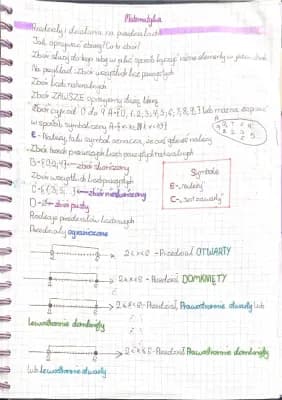 Matematyka
Przedziały i działania na przedziałach
Jak opisywać zbiory? Co to zbiór?
Zbiór służy do tego aby w jakiś sposób łączyć różne elementy w jeden
Na przykład: Zbiór wszystkich liczb parzystych
Zbiór liczb naturalnych
Zbiór ZAWSZE opisujemy dużą literą
Zbiór cyfr od 0 do 9 A={0,1,2,3,4,5,6,7,8,9} lub można zapisać
w sposób symboliczny A=
E - Należy, taki symbol oznacza, że coś gdzieś należy
Zbiór trzech pierwszych liczb parzystych naturalnych
B={0,2,4} ← zbiór skończony
Zbiór wszystkich liczb parzystych
← zbiór nieskończony
D=Ø ← zbiór pusty
Symbole
E - "należy"
C - "zawarty"
Rodzaje przedziałów liczbowych
Przedziały ograniczone
2<x<8 - Przedział OTWARTY
2≤x≤8 - Przedział DOMKNIĘTY
2≤x<8 - Przedział Prawostronnie otwarty lub
Lewostronnie domknięty
2<x≤8 - Przedział Prawostronnie domknięty
lub Lewostronnie otwarty